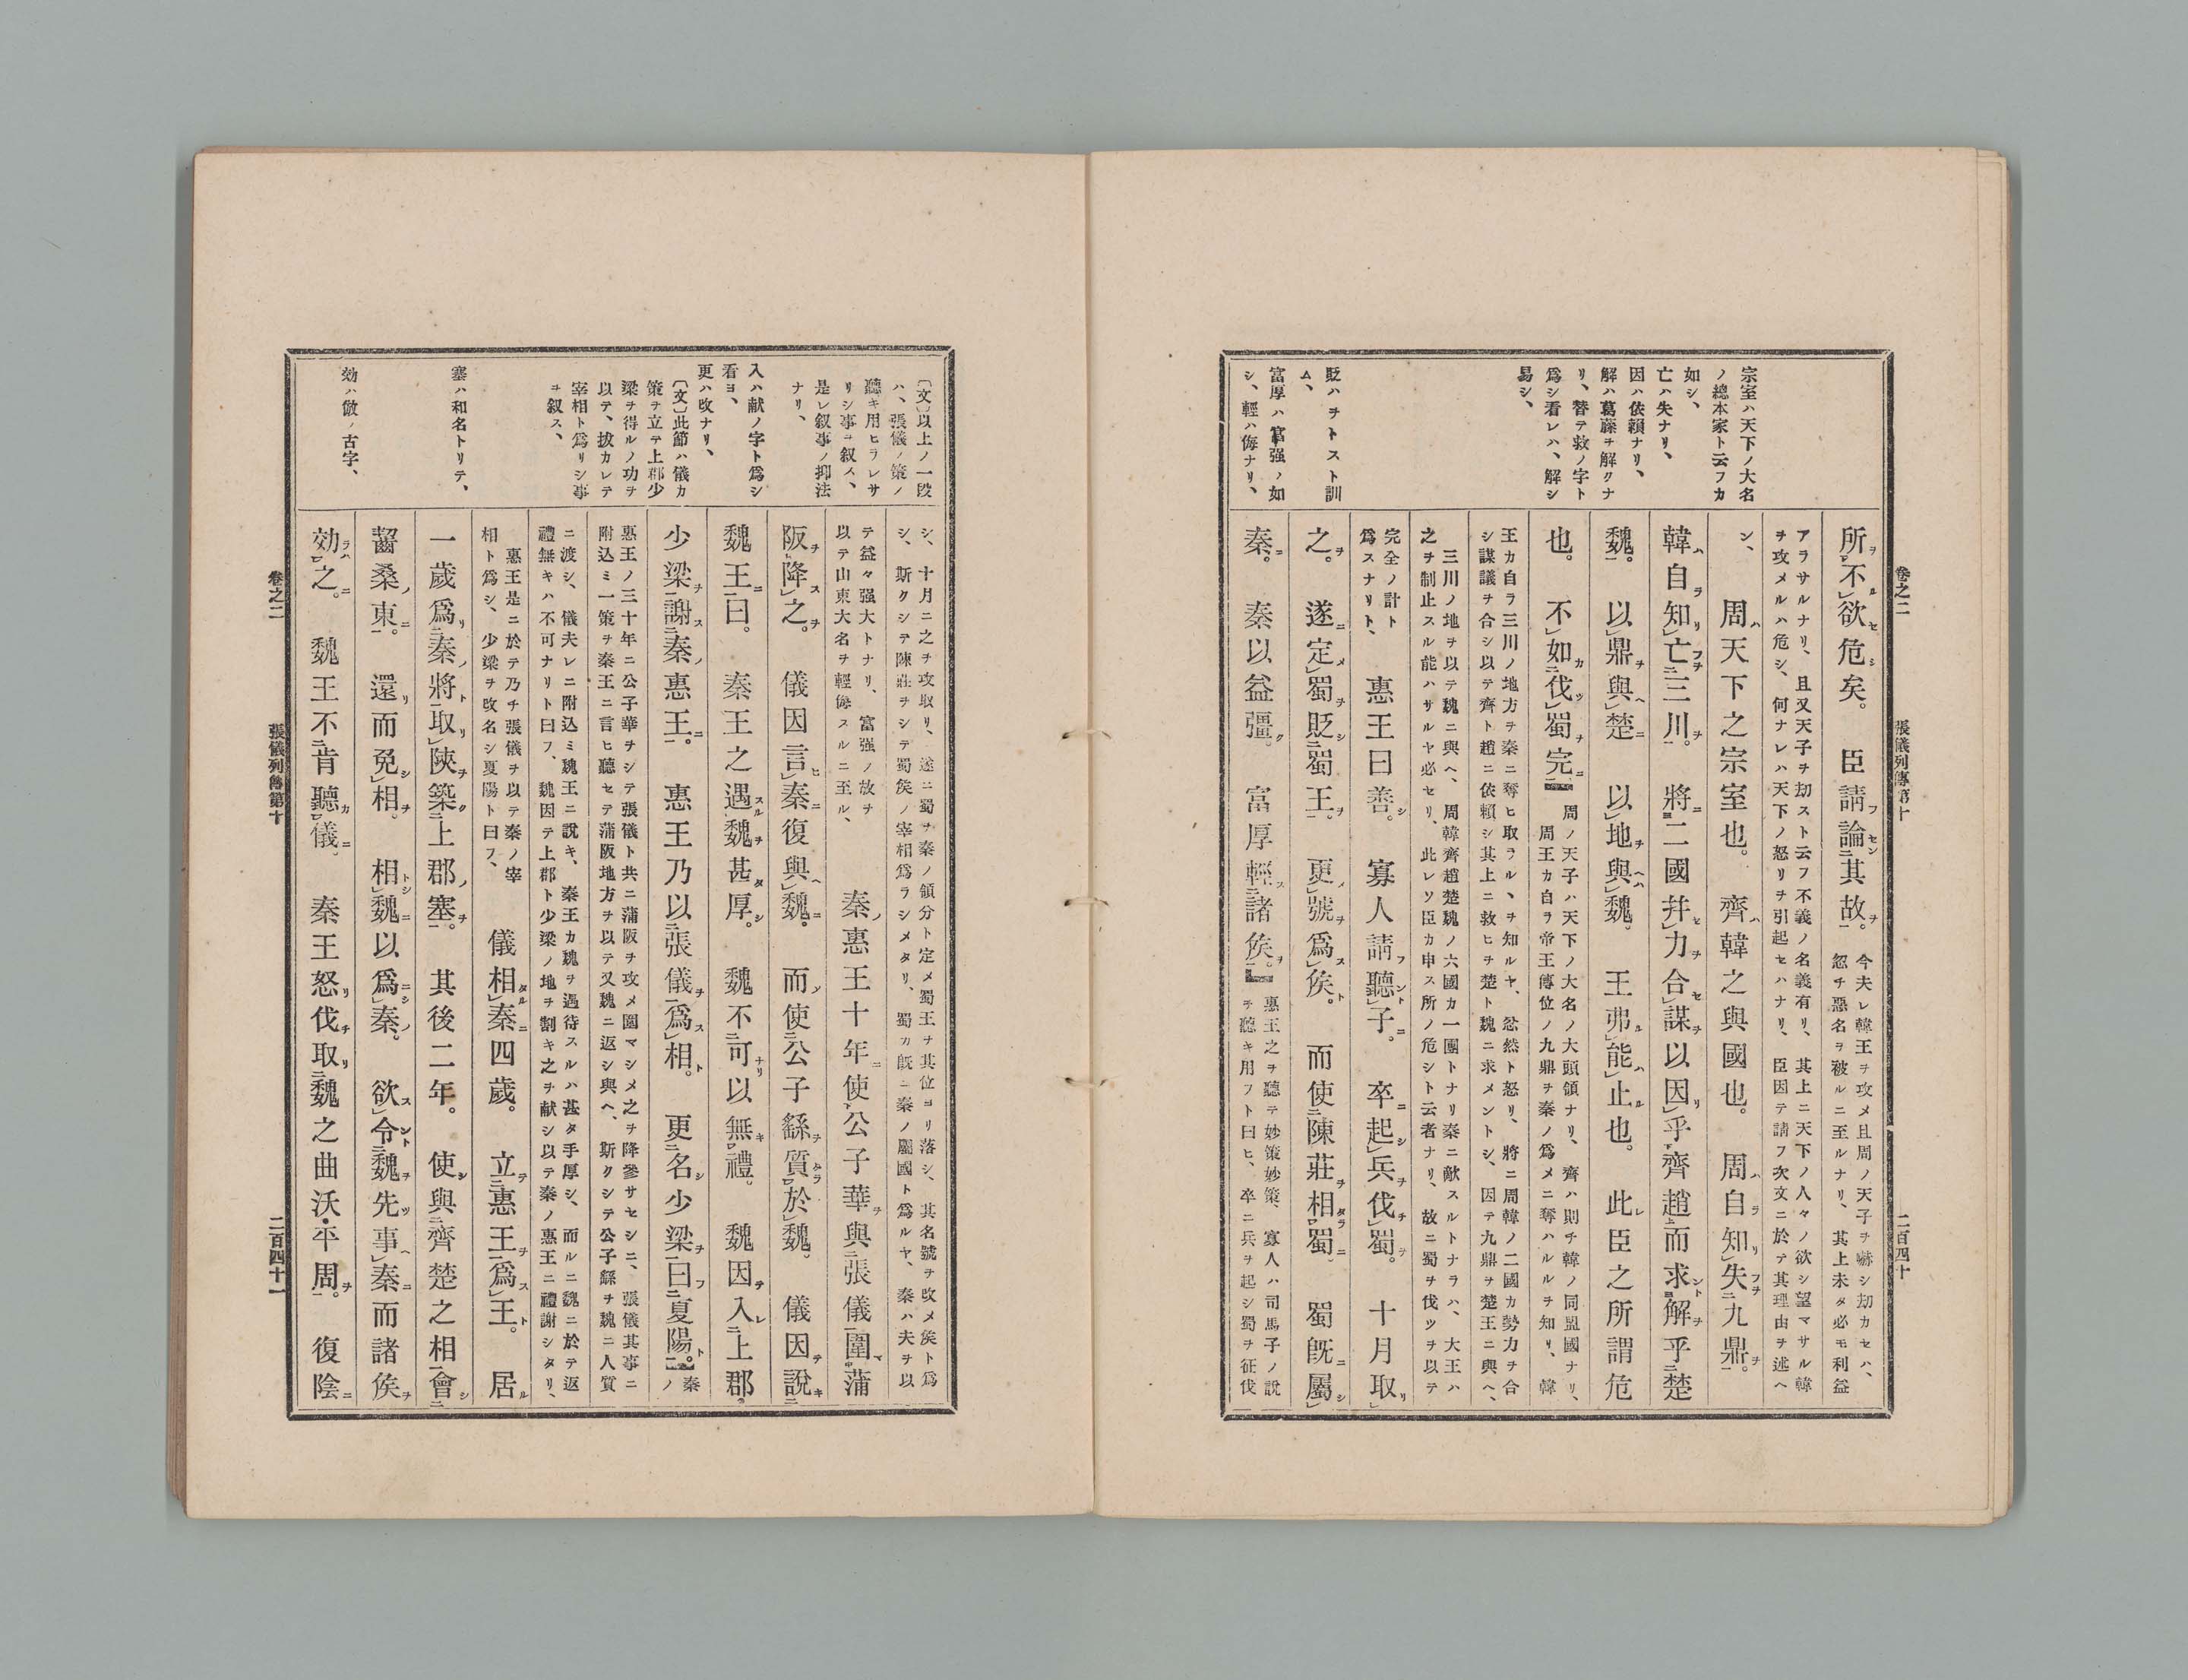 卷之二
張儀列傳第十
二百四十
宗室ハ天下ノ大名
ノ總本家ト云フカ
如シ、
亡ハ失ナリ、
因ハ依賴ナリ、
解ハ葛藤ヲ解クナ
リ、替テ救ノ字ト
爲シ看レハ、解シ
易シ、
貶ハヲトスト訓
ム、
富厚ハ富强ノ如
シ、輕ハ侮ナリ、
所不欲危矣。臣請論其故。今夫レ韓王ヲ攻メ且周ノ天子ヲ嚇シ劫カセハ、
忽チ惡名ヲ被ルニ至ルナリ、其上未タ必モ利益
アラサルナリ、且又天子ヲ劫スト云フ不義ノ名義有リ、其上ニ天下ノ人々ノ欲シ望マサル韓
ヲ攻メルハ危シ、何ナレハ天下ノ怒リヲ引起セハナリ、臣因テ請フ次文ニ於テ其理由ヲ述ヘ
ン、周天下之宗室也。齊韓之與國也。周自知失九鼎。
韓自知亡三川。將二國幷力合謀以因乎齊趙而求解乎楚
魏。以鼎與楚以地與魏。王弗能止也。此臣之所謂危
也。不如伐蜀完周ノ天子ハ天下ノ大名ノ大頭領ナリ、齊ハ則チ韓ノ同盟國ナリ、
周王カ自ラ帝王傳位ノ九鼎ヲ秦ノ爲メニ奪ハルルヲ知リ、韓
王カ自ラ三川ノ地方ヲ秦ニ奪ヒ取ラルヽヲ知ルヤ、忿然ト怒リ、將ニ周韓ノ二國カ勢力ヲ合
シ謀議ヲ合シ以テ齊ト趙ニ依賴シ其上ニ救ヒヲ楚ト魏ニ求メントシ、因テ九鼎ヲ楚王ニ與ヘ、
三川ノ地ヲ以テ魏ニ與ヘ、周韓齊趙楚魏ノ六國カ一團トナリ秦ニ敵スルトナラハ、大王ハ
之ヲ制止スル能ハサルヤ必セリ、此レソ臣カ申ス所ノ危シト云者ナリ、故ニ蜀ヲ伐ツヲ以テ
完全ノ計ト
爲スナリト、惠王曰善。寡人請聽子。卒起兵伐蜀。十月取
之。遂定蜀貶蜀王。更號爲侯。而使陳莊相蜀。蜀旣屬
秦。秦以益彊。富厚輕諸侯。惠王之ヲ聽テ妙策妙策、寡人ハ司馬子ノ說
ヲ聽キ用フト曰ヒ、卒ニ兵ヲ起シ蜀ヲ征伐
〔文〕以上ノ一段
ハ、張儀ノ策ノ
聽キ用ヒラレサ
リシ事ヲ叙ス、
是レ叙事ノ抑法
ナリ、
入ハ献ノ字ト爲シ
看ヨ、
更ハ改ナリ、
〔文〕此節ハ儀カ
策ヲ立テ上郡少
梁ヲ得ルノ功ヲ
以テ、拔カレテ
宰相ト爲リシ事
ヲ叙ス、
塞ハ和名トリテ、
効ハ倣ノ古字、
シ、十月ニ之ヲ攻取リ、遂ニ蜀ヲ秦ノ領分ト定メ蜀王ヲ其位ヨリ落シ、其名號ヲ改メ侯ト爲
シ、斯クシテ陳莊ヲシテ蜀侯ノ宰相爲ラシメタリ、蜀カ旣ニ秦ノ屬國ト爲ルヤ、秦ハ夫ヲ以
テ益々强大トナリ、富强ノ故ヲ
以テ山東大名ヲ輕侮スルニ至ル、秦惠王十年使公子華與張儀圍蒲
阪降之。儀因言秦復與魏。而使公子繇質於魏。儀因說
魏王曰。秦王之遇魏甚厚。魏不可以無禮。魏因入上郡。
少梁謝秦惠王。惠王乃以張儀爲相。更名少梁曰夏陽。秦ノ
惠王ノ三十年ニ公子華ヲシテ張儀ト共ニ蒲阪ヲ攻メ圍マシメ之ヲ降參サセシニ、張儀其事ニ
附込ミ一策ヲ秦王ニ言ヒ聽セテ蒲阪地方ヲ以テ又魏ニ返シ與ヘ、斯クシテ公子繇ヲ魏ニ人質
ニ渡シ、儀夫レニ附込ミ魏王ニ說キ、秦王カ魏ヲ遇待スルハ甚タ手厚シ、而ルニ魏ニ於テ返
禮無キハ不可ナリト曰フ、魏因テ上郡ト少梁ノ地ヲ割キ之ヲ献シ以テ秦ノ惠王ニ禮謝シタリ、
惠王是ニ於テ乃チ張儀ヲ以テ秦ノ宰
相ト爲シ、少梁ヲ改名シ夏陽ト曰フ、儀相秦四歲。立惠王爲王。居
一歲爲秦將取陝築上郡塞。其後二年。使與齊楚之相會
齧桑東。還而免相。相魏以爲秦。欲令魏先事秦而諸侯
効之。魏王不肯聽儀。秦王怒伐取魏之曲沃・平周。復陰
卷之二
張儀列傳第十
二百四十一